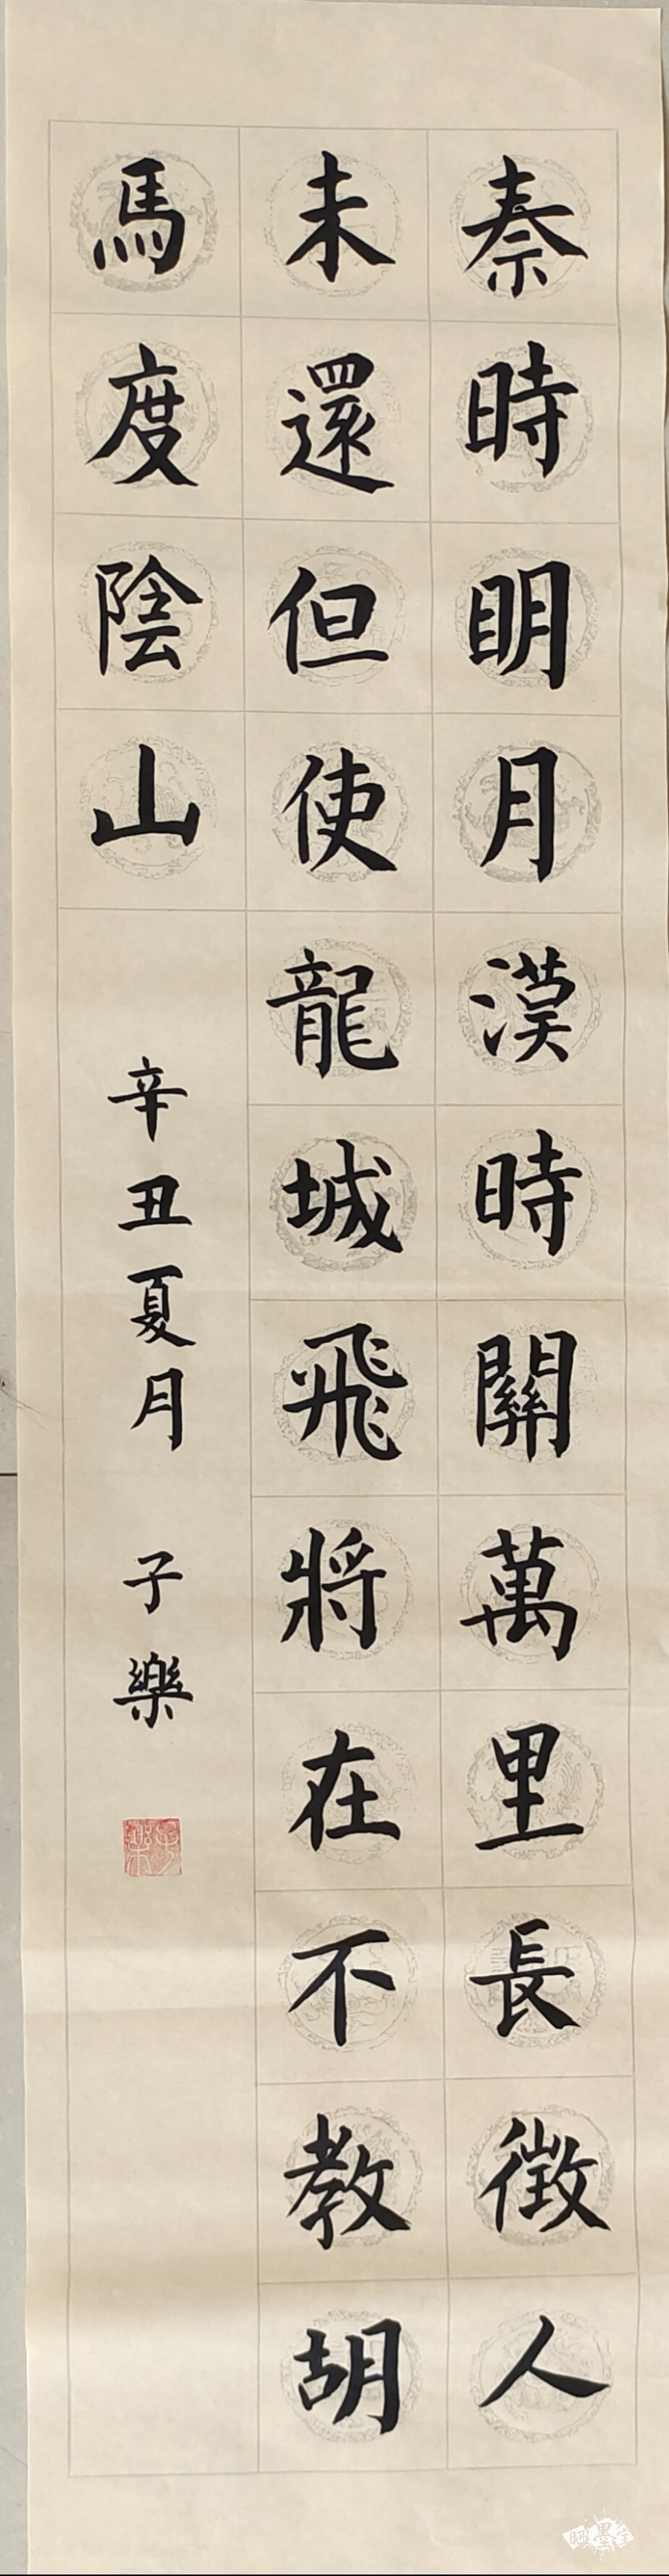 秦時明月漢時關萬里長徵人
未還但使龍城飛將在不教胡
馬度陰山
辛丑夏月 子樂
子樂
晒墨宝